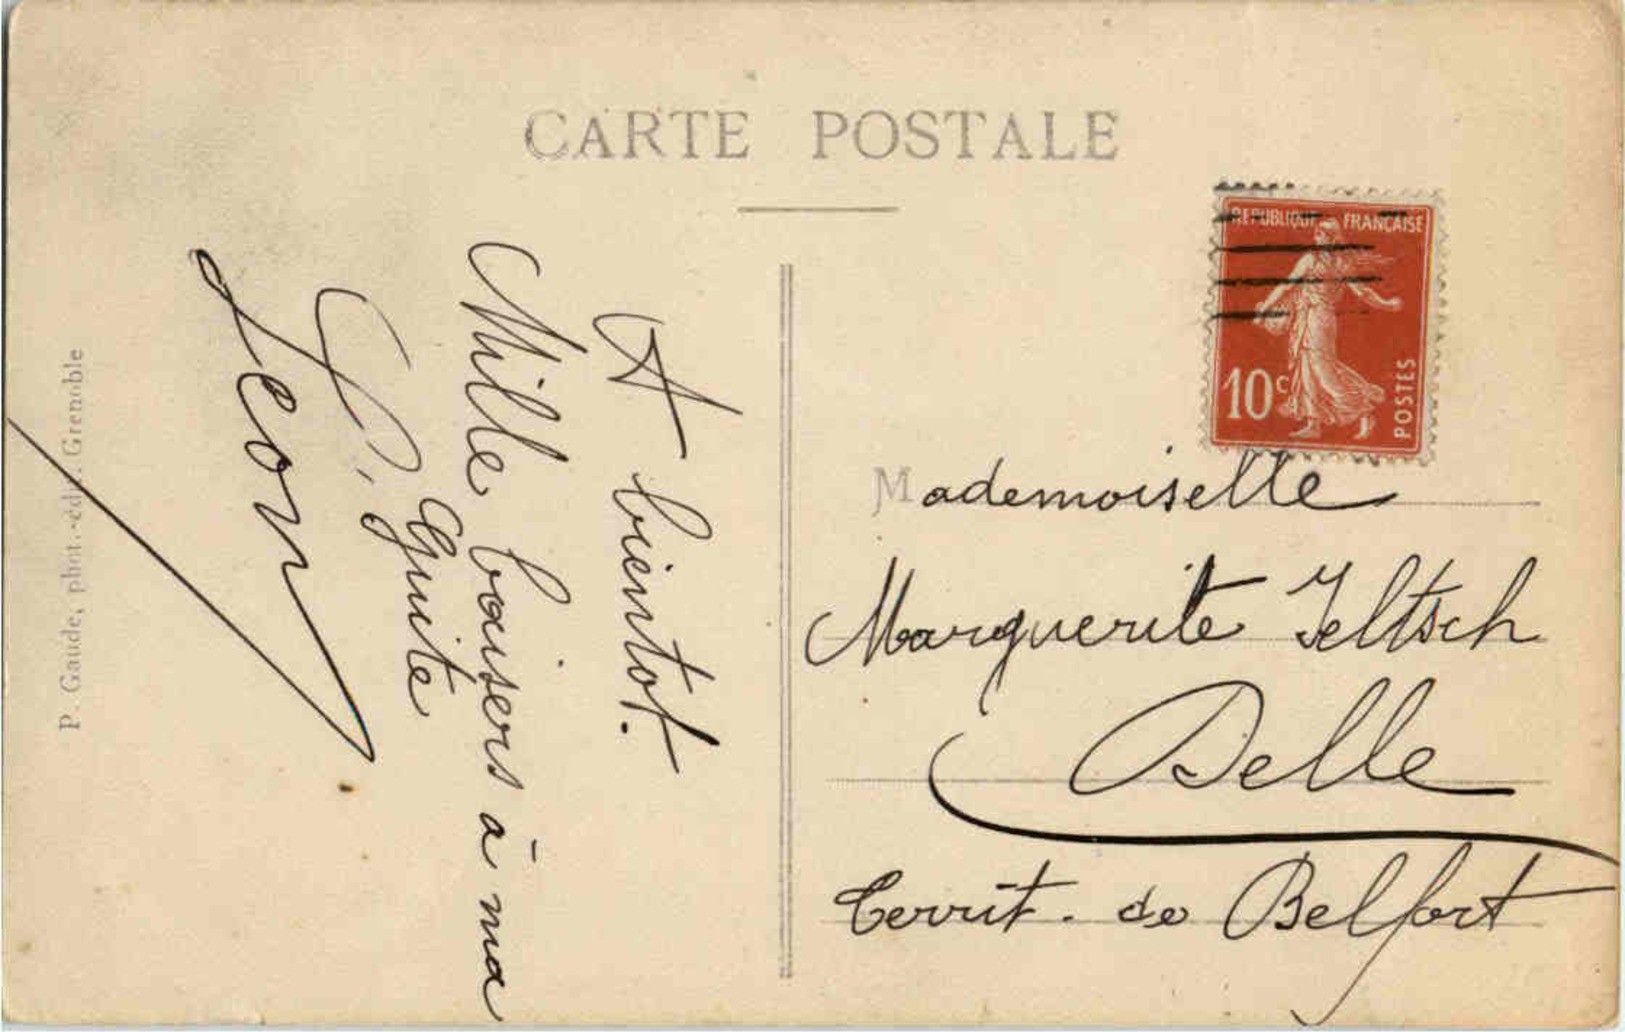 CARTE POSTALE
REPUBLIQUE FRANÇAISE
10c
POSTES
A bientot.
Mille baisers à ma
Guite
Leon
Mademoiselle
Marguerite Jeltsch
Delle
Territ. de Belfort
P. Gaude, phot.-éd. Grenoble